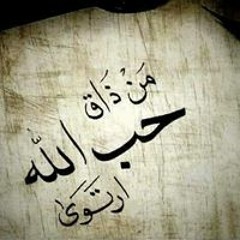 مَنْ ذَاق
حب الله
ارتَوَى